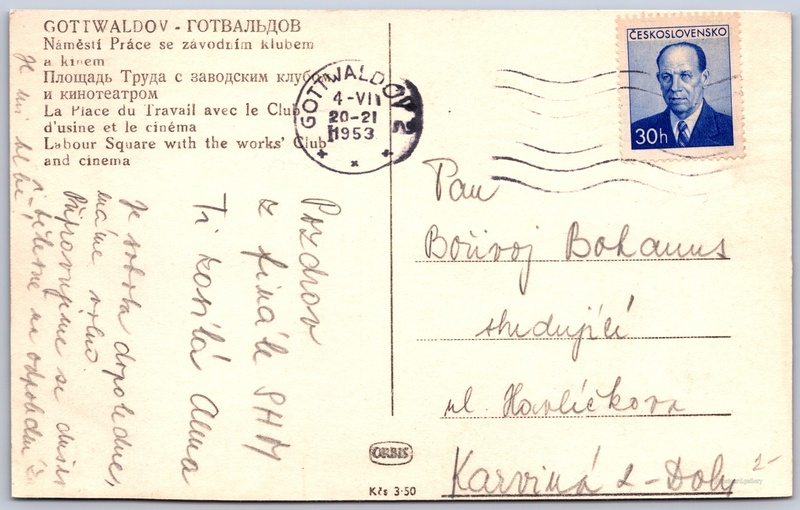 GOTTWALDOV - ГОТВАЛЬДОВ
Náměstí Práce se závodním klubem
a kinem
Площадь Труда с заводским клубом
и кинотеатром
La Place du Travail avec le Club
d'usine et le cinéma
Labour Square with the works' Club
and cinema
GOTTWALDOV 2
4-VII
20-21
1953
ČESKOSLOVENSKO
30h
Pozdrav
z finále SHM
Ti zasílá
Je sobota dopoledne,
máme volno.
Připravujeme se
na odpoledne
Pan
Bořivoj Bohanus
studující
ul. Havlíčkova
Karviná 2-Doly
ORBIS
Kčs 3·50